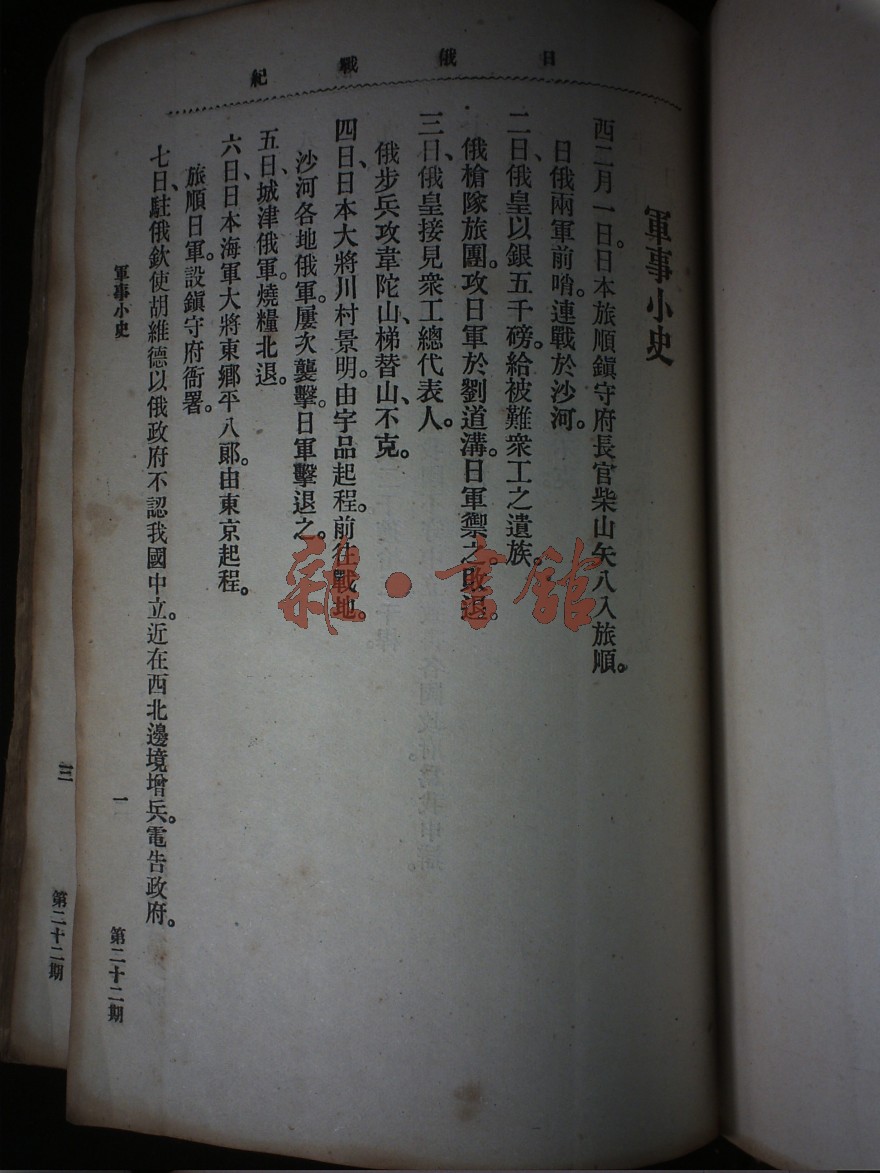 日俄戰紀
軍事小史
西二月一日。日本旅順鎭守府長官柴山矢八入旅順。
日俄兩軍前哨。連戰於沙河。
二日、俄皇以銀五千磅。給被難衆工之遺族。
俄槍隊旅團。攻日軍於劉道溝。日軍禦之。敗退。
三日、俄皇接見衆工總代表人。
俄步兵攻韋陀山、梯替山、不克。
四日、日本大將川村景明。由宇品起程。前往戰地。
沙河各地俄軍。屢次襲擊。日軍擊退之。
五日、城津俄軍。燒糧北退。
六日、日本海軍大將東鄉平八郞。由東京起程。
旅順日軍。設鎭守府衙署。
七日、駐俄欽使胡維德以俄政府不認我國中立。近在西北邊境增兵。電告政府。
軍事小史
一
第二十二期
三
第二十二期
雜·書館